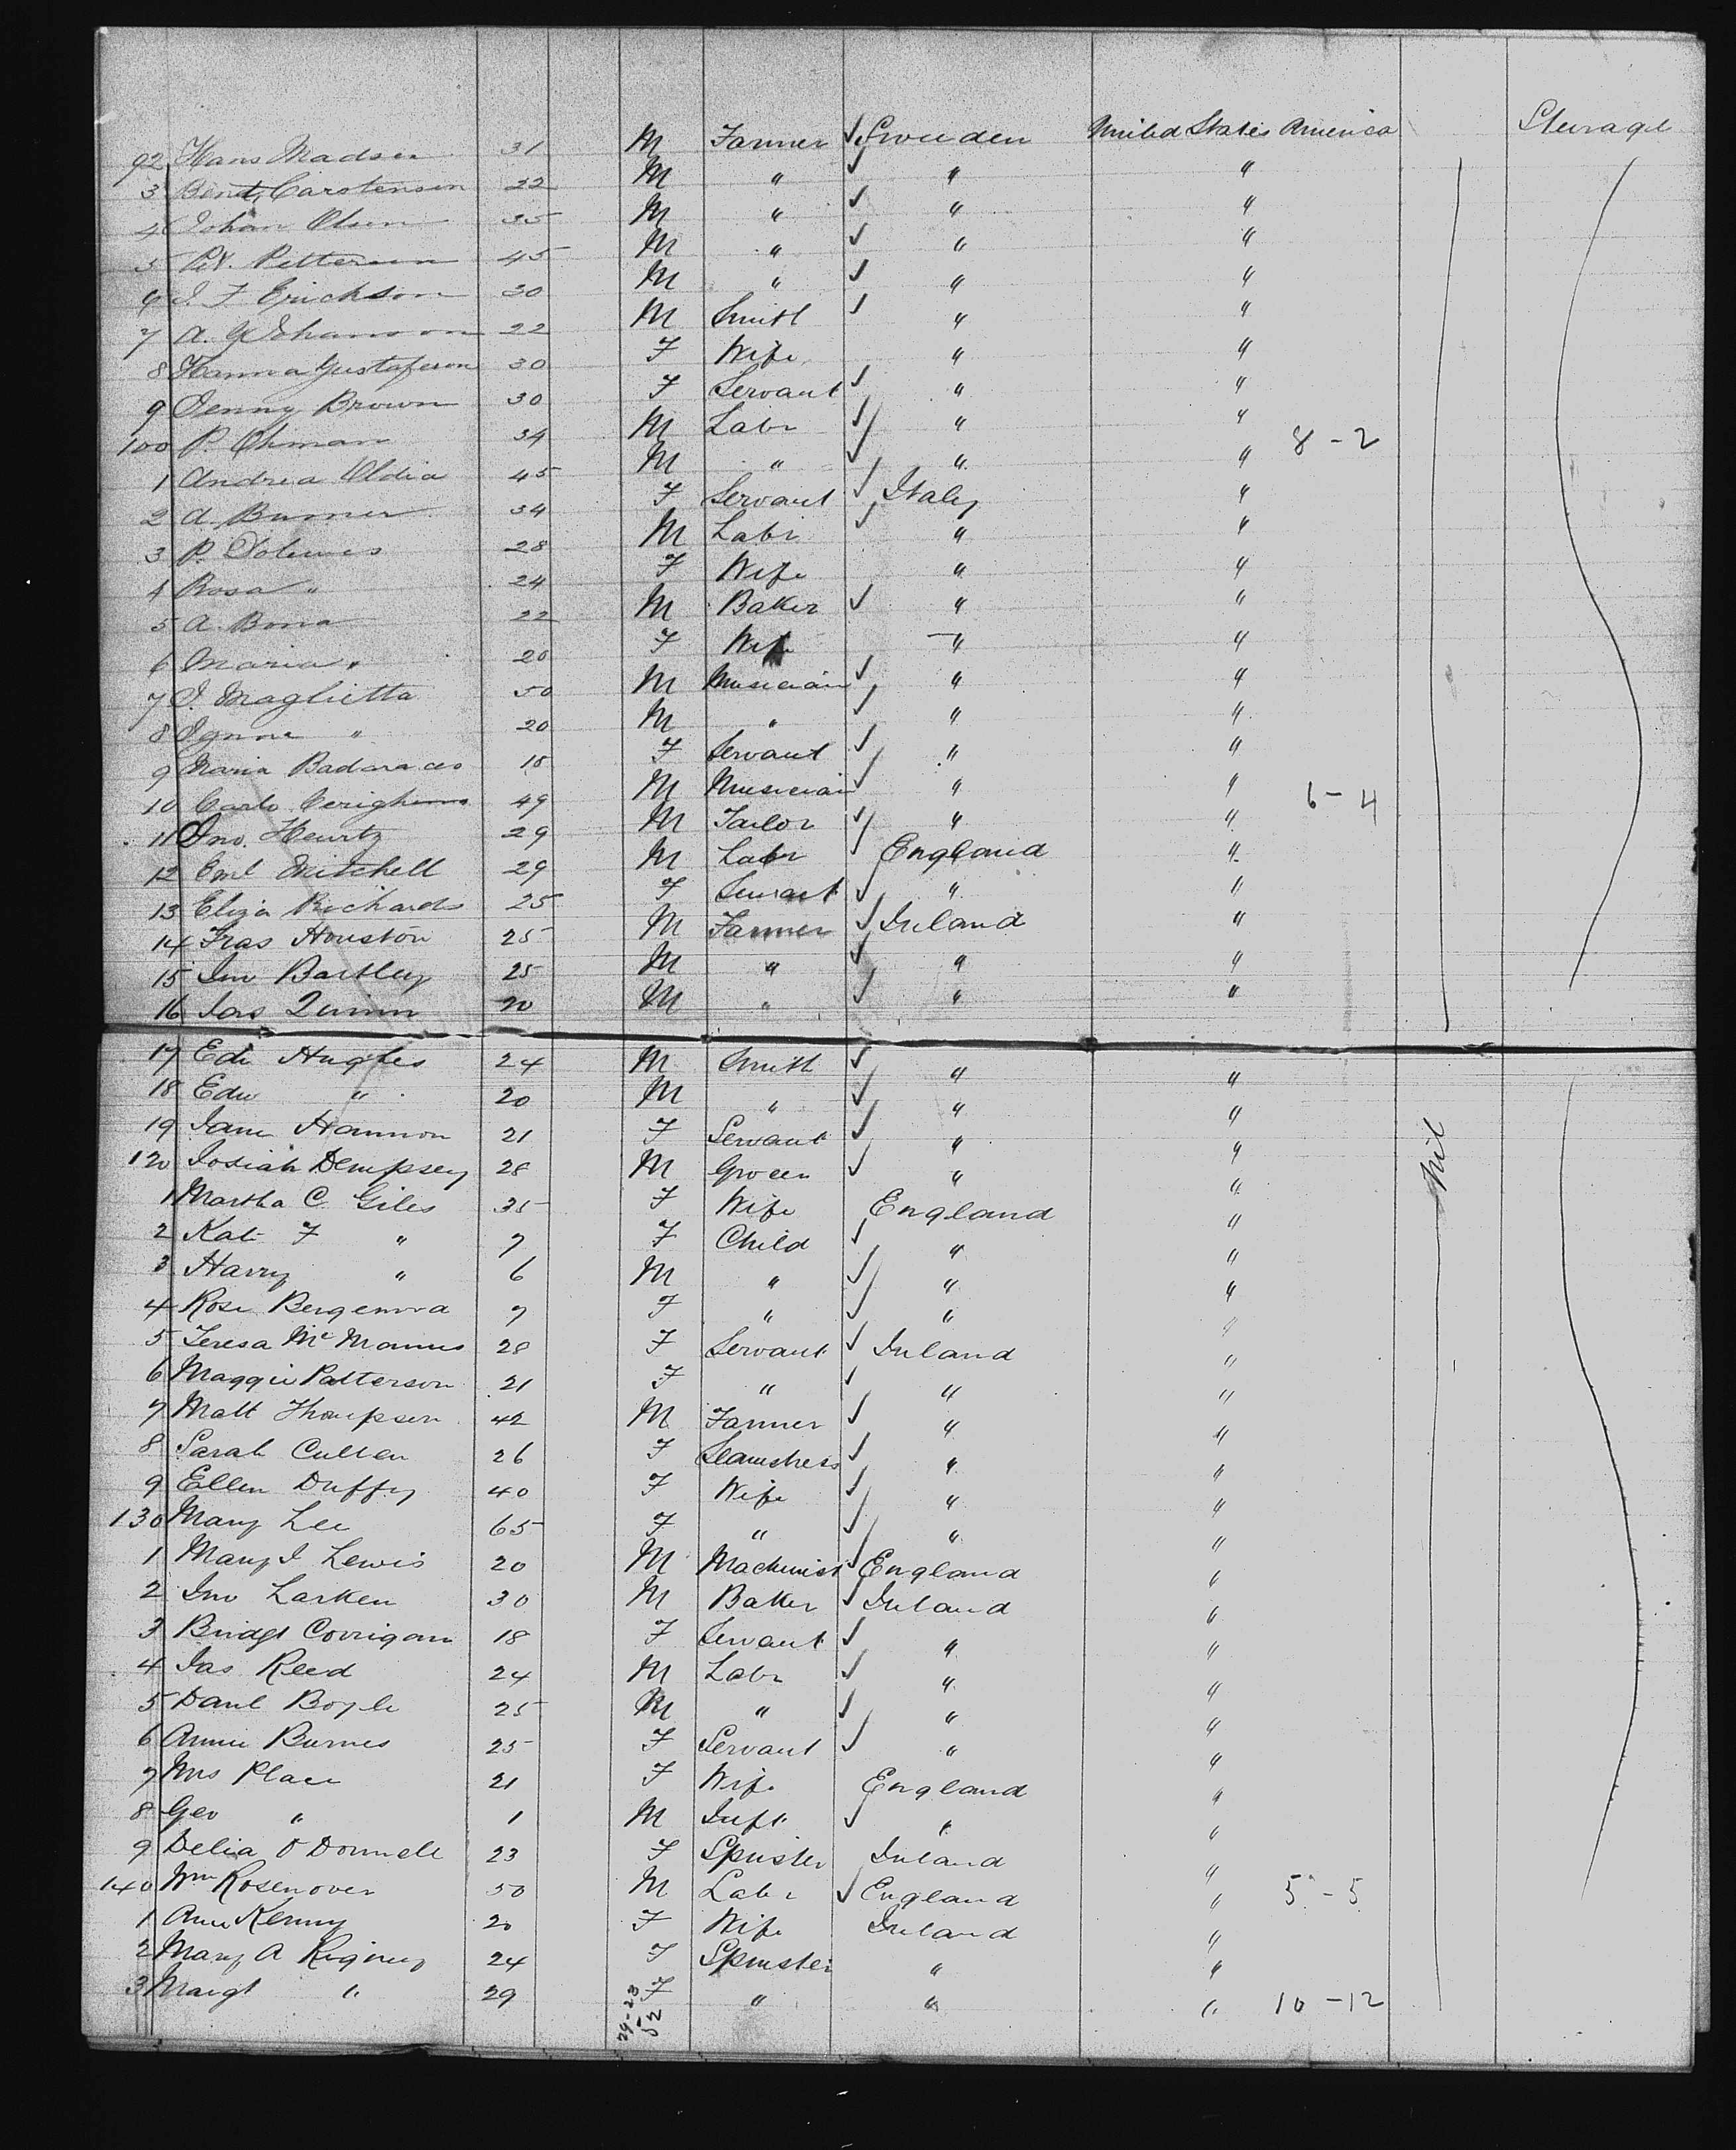 92 Hans Madsen 31 M Farmer ✓ Sweeden United States America Steerage
3 Bendt Carstensen 32 M " ✓ " "
4 Johan Olsen 35 M " ✓ " "
5 Pet. Pettersen 45 M " ✓ " "
6 J. F Erickson 30 M " ✓ " "
7 A. G Johansson 22 M Smith ✓ " "
8 Hanna Gustafsson 30 F Wife " "
9 Jenny Brown 30 F Servant ✓ " "
100 P. Ohman 34 M Labr ✓ " " 8-2
1 Andrea Oldia 45 M " ✓ " "
2 A. Burner 34 F Servant ✓ Italy "
3 P. 28 M Labr ✓ " "
4 Rosa " 24 F Wife " "
5 A. Bona 22 M Baker ✓ " "
6 Maria " 20 F Wife " "
7 J. Maglietta 50 M Musician ✓ " "
8 " 20 M " ✓ " "
9 Maria Badaracco 18 F Servant ✓ " "
10 Carlo 49 M Musician ✓ " " 6-4
11 Jno. Heurtz 29 M Tailor ✓ " "
12 Eml Mitchell 29 M Labr ✓ England "
13 Eliza Richards 25 F Servant ✓ " "
14 Fras Houston 25 M Farmer ✓ Ireland "
15 Jno Bartley 25 M " ✓ " "
16 Jas Quinn 20 M " ✓ " "
17 Edw Hughes 24 M Smith ✓ " "
18 Edw " 20 M " ✓ " "
19 Jane Hannon 21 F Servant ✓ " " Nil
120 Josiah Dempsey 28 M Grocer ✓ " "
1 Martha C. Giles 35 F Wife England "
2 Kate F " 7 F Child ✓ " "
3 Harry " 6 M " ✓ " "
4 Rose 7 F " ✓ " "
5 Teresa McManus 28 F Servant ✓ Ireland "
6 Maggie Patterson 21 F " ✓ " "
7 Matt Thompson 42 M Farmer ✓ " "
8 Sarah Cullen 26 F Seamstress ✓ " "
9 Ellen Duffy 40 F Wife ✓ " "
130 Mary Lee 65 F " ✓ " "
1 Mary J Lewis 20 M Machinist ✓ England "
2 Jno Larken 30 M Baker ✓ Ireland "
3 Bridgt Corrigan 18 F Servant ✓ " "
4 Jas Reed 24 M Labr ✓ " "
5 Danl Boyle 25 M " ✓ " "
6 Annie Burnes 25 F Servant ✓ " "
7 Mrs Place 21 F Wife England "
8 Geo " 1 M Inft ✓ " "
9 Delia O Donnell 23 F Spinster Ireland "
140 Wm Rosenover 50 M Labr ✓ England " 5-5
1 Ann Kenny 20 F Wife Ireland "
2 Mary A Rigney 24 F Spinster " "
3 Margt " 29 F " " " 10-12
29-23
52